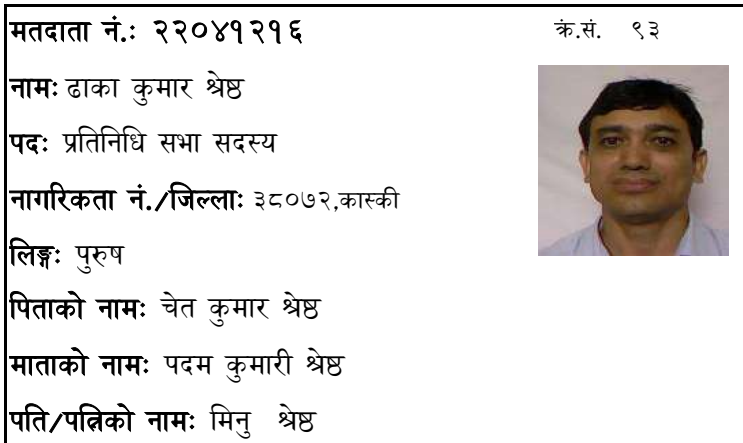 मतदाता नं.: २२०४१२१६ क्रं.सं. ९३
नाम: ढाका कुमार श्रेष्ठ
पद: प्रतिनिधि सभा सदस्य
नागरिकता नं./जिल्ला: ३८०७२,कास्की
लिङ्ग: पुरुष
पिताको नाम: चेत कुमार श्रेष्ठ
माताको नाम: पदम कुमारी श्रेष्ठ
पति/पत्निको नाम: मिनु श्रेष्ठ